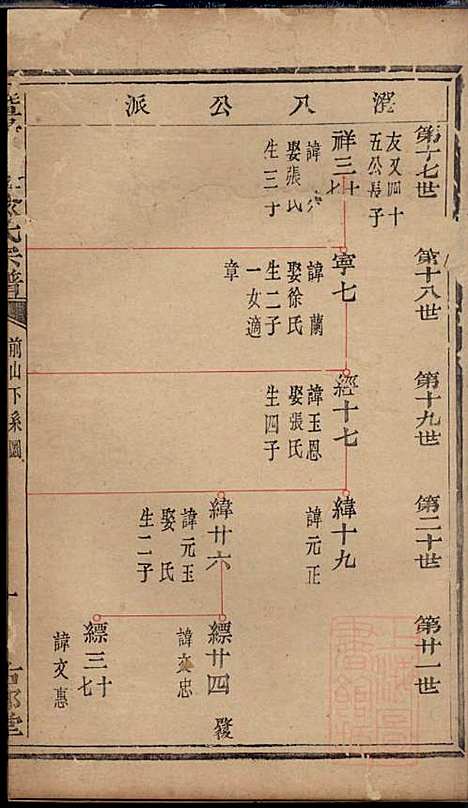 澄八公派
第十七世
友叉四十
五公長子
祥三十七
諱
娶張氏
生三子
第十八世
寧七
諱蘭
娶徐氏
生二子
一女適
章
第十九世
經十七
諱玉恩
娶張氏
生四子
第二十世
緯十九
諱元正
緯廿六
諱元玉
娶 氏
生二子
第廿一世
縹廿四
諱文忠
縹三十七
諱文惠
氏宗譜
前山下系圖
堂